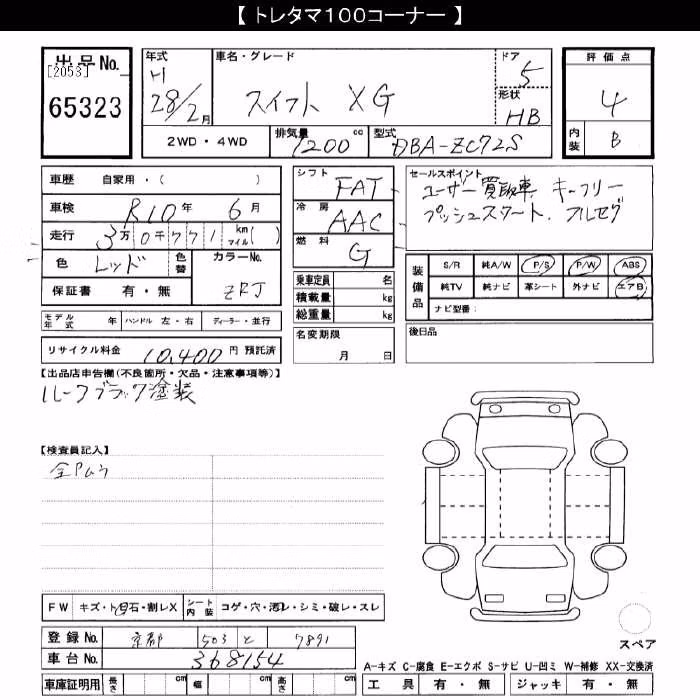 【 トレタマ100コーナー 】
出品No.
[2053]
65323
年式
H
28/2月
車名・グレード
スイフト XG
ドア
5
形状
HB
評価点
4
内装
B
2WD・4WD
排気量
1200 cc
型式
DBA-ZC72S
車歴 自家用・( )
車検 R10年 6月
走行 3万0771 km マイル( )
色 レッド
色替
カラーNo.
ZRJ
保証書 有・無
シフト
FAT
冷房
AAC
燃料
G
乗車定員 名
積載量 kg
総重量 kg
セールスポイント
ユーザー買取車 キーフリー
プッシュスタート. フルセグ
装備品
S/R 純A/W P/S P/W ABS
純TV 純ナビ 革シート 外ナビ エアB
ナビ型番：
モデル年式 年 ハンドル 左・右 ディーラー・並行
リサイクル料金 10,400 円 預託済
名変期限
月 日
後日品
【出品店申告欄(不良箇所・欠品・注意事項等)】
ルーフブラック塗装
【検査員記入】
FW キズ・ト石・割レX
シート内装 コゲ・穴・汚レ・シミ・破レ・スレ
登録No. 京都 503 と 7891
車台No. 368154
車庫証明用 長さ cm 幅 cm 高さ cm
スペア
A-キズ C-腐食 E-エクボ S-サビ U-凹ミ W-補修 XX-交換済
工具 有・無 ジャッキ 有・無